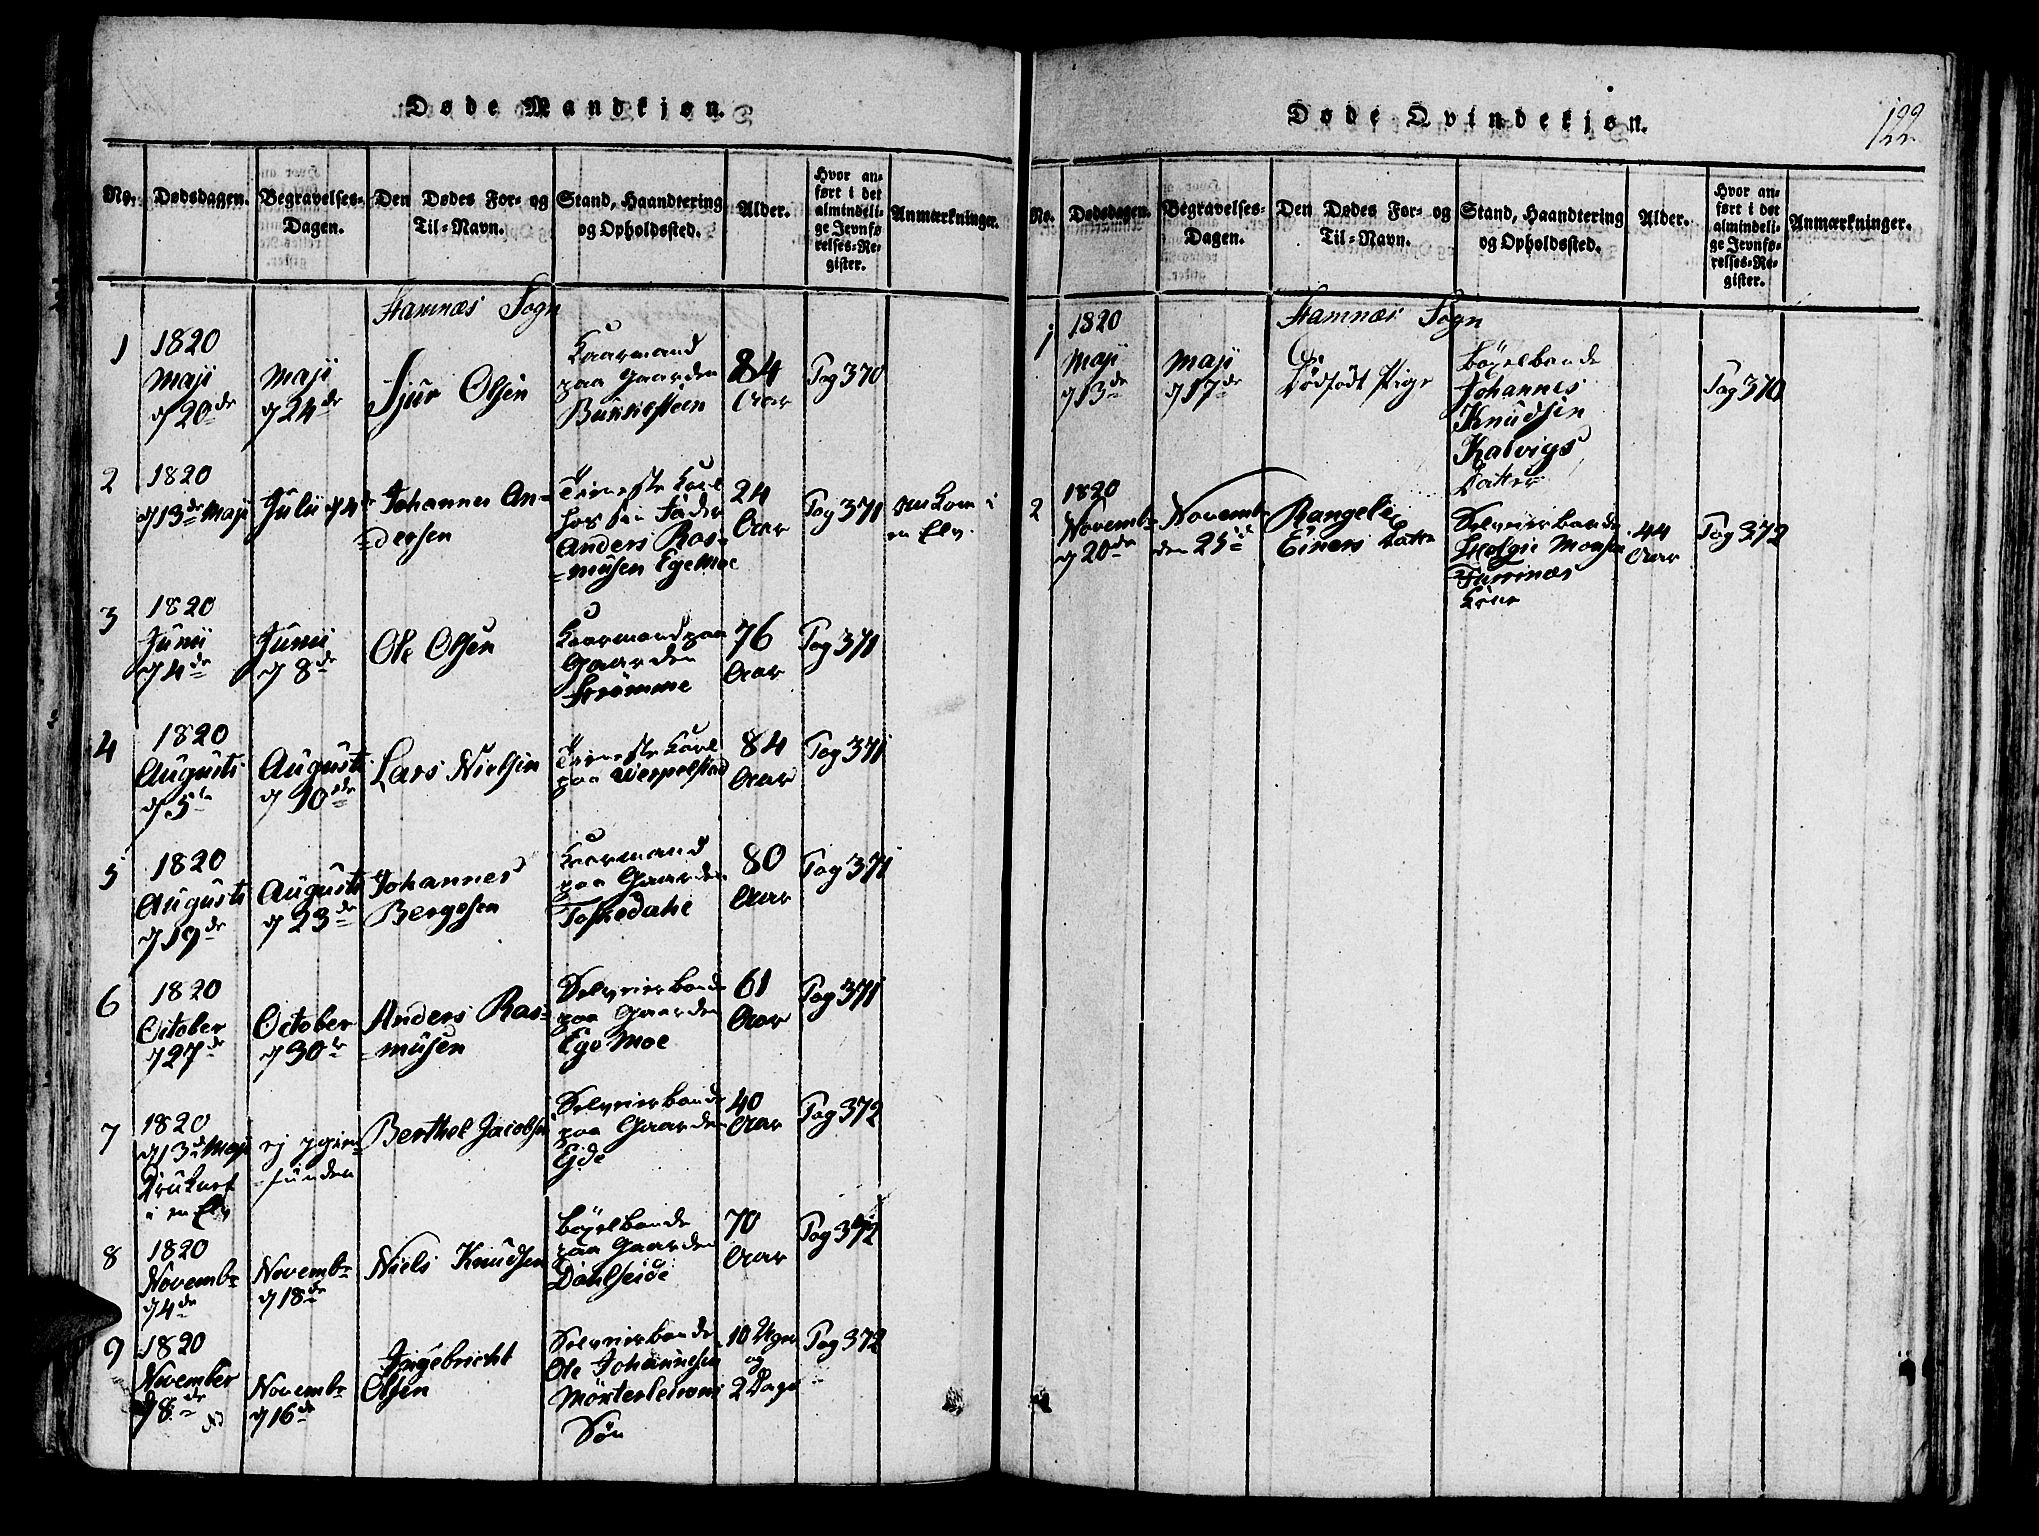 Døde Mandkjøn.
No. Dødsdagen. Begravelses-Dagen. Den Dødes For- og Til-Navn. Stand, Haandtering og Opholdssted. Alder. Hvor anført i det almindelige Jevnførelses-Register. Anmærkninger.
Stamnæs Sogn
1
1820
Maji
d 20de
Maji
d 24de
Sjur Olsen
Kaarmand
paa Gaarden
Bukkesteen
84
Aar
Pag 370
2
1820
d 13de Maji
Julii d 4de
Johannes An-
-dersen
Tieneste Karl
hos sin Fader
Anders Ras-
-musen Egemoe
24
Aar
Pag 371
omkom i
en Elv.
3
1820
Junii
d 4de
Junii
d 8de
Ole Olsen
Kaarmand paa
Gaarden
Strømme
76
Aar
Pag 371
4
1820
Augusti
d 5te
Augusti
d 10de
Lars Nielsen
Tieneste Karl
paa
84
Aar
Pag 371
5
1820
Augusti
d 19de
Augusti
d 23de
Johannes
Bergesen
Kaarmand
paa Gaarden
Toskedahl
80
Aar
Pag 371
6
1820
October
d 27de
October
d 30de
Anders Ras-
-musen
Selveierbonde
paa Gaarden
Ege Moe
61
Aar
Pag 371
7
1820
d 13de Maji
Druknet
i en Elv
ej igien-
-funden
Berthel Jacobsen
Selveierbonde
paa Gaarden
Eide
40
Aar
Pag 372
8
1820
Novembr
d 4de
Novembr
d 18de
Niels Knudsen
Bøxelbonde
paa Gaarden
Dahlseide
70
Aar
Pag 372
9
1820
November
d 8de
Novembr
d 16de
Ingebricht
Olsen
Selveierbonde
Ole Johannesen
Søn
10 Uger
og
2 Dage
Pag 372
Døde Qvindekjøn.
122
No. Dødsdagen. Begravelses-Dagen. Den Dødes For- og Til-Navn. Stand, Haandtering og Opholdssted. Alder. Hvor anført i det almindelige Jevnførelses-Register. Anmærkninger.
Stamnæs Sogn
1
1820
Maji
d 13de
Maji
d 17de
En
Dødfødt Pige
Bøxelbonde
Johannes
Knudsen
Kalvigs
Datter
Pag 370
2
1820
Novembr
d 20de
Novembr
den 25de
Rangele
Einers Datter
Selveierbonde
Helgie Monsen
Furrnæs
Kone
44
Aar
Pag 372